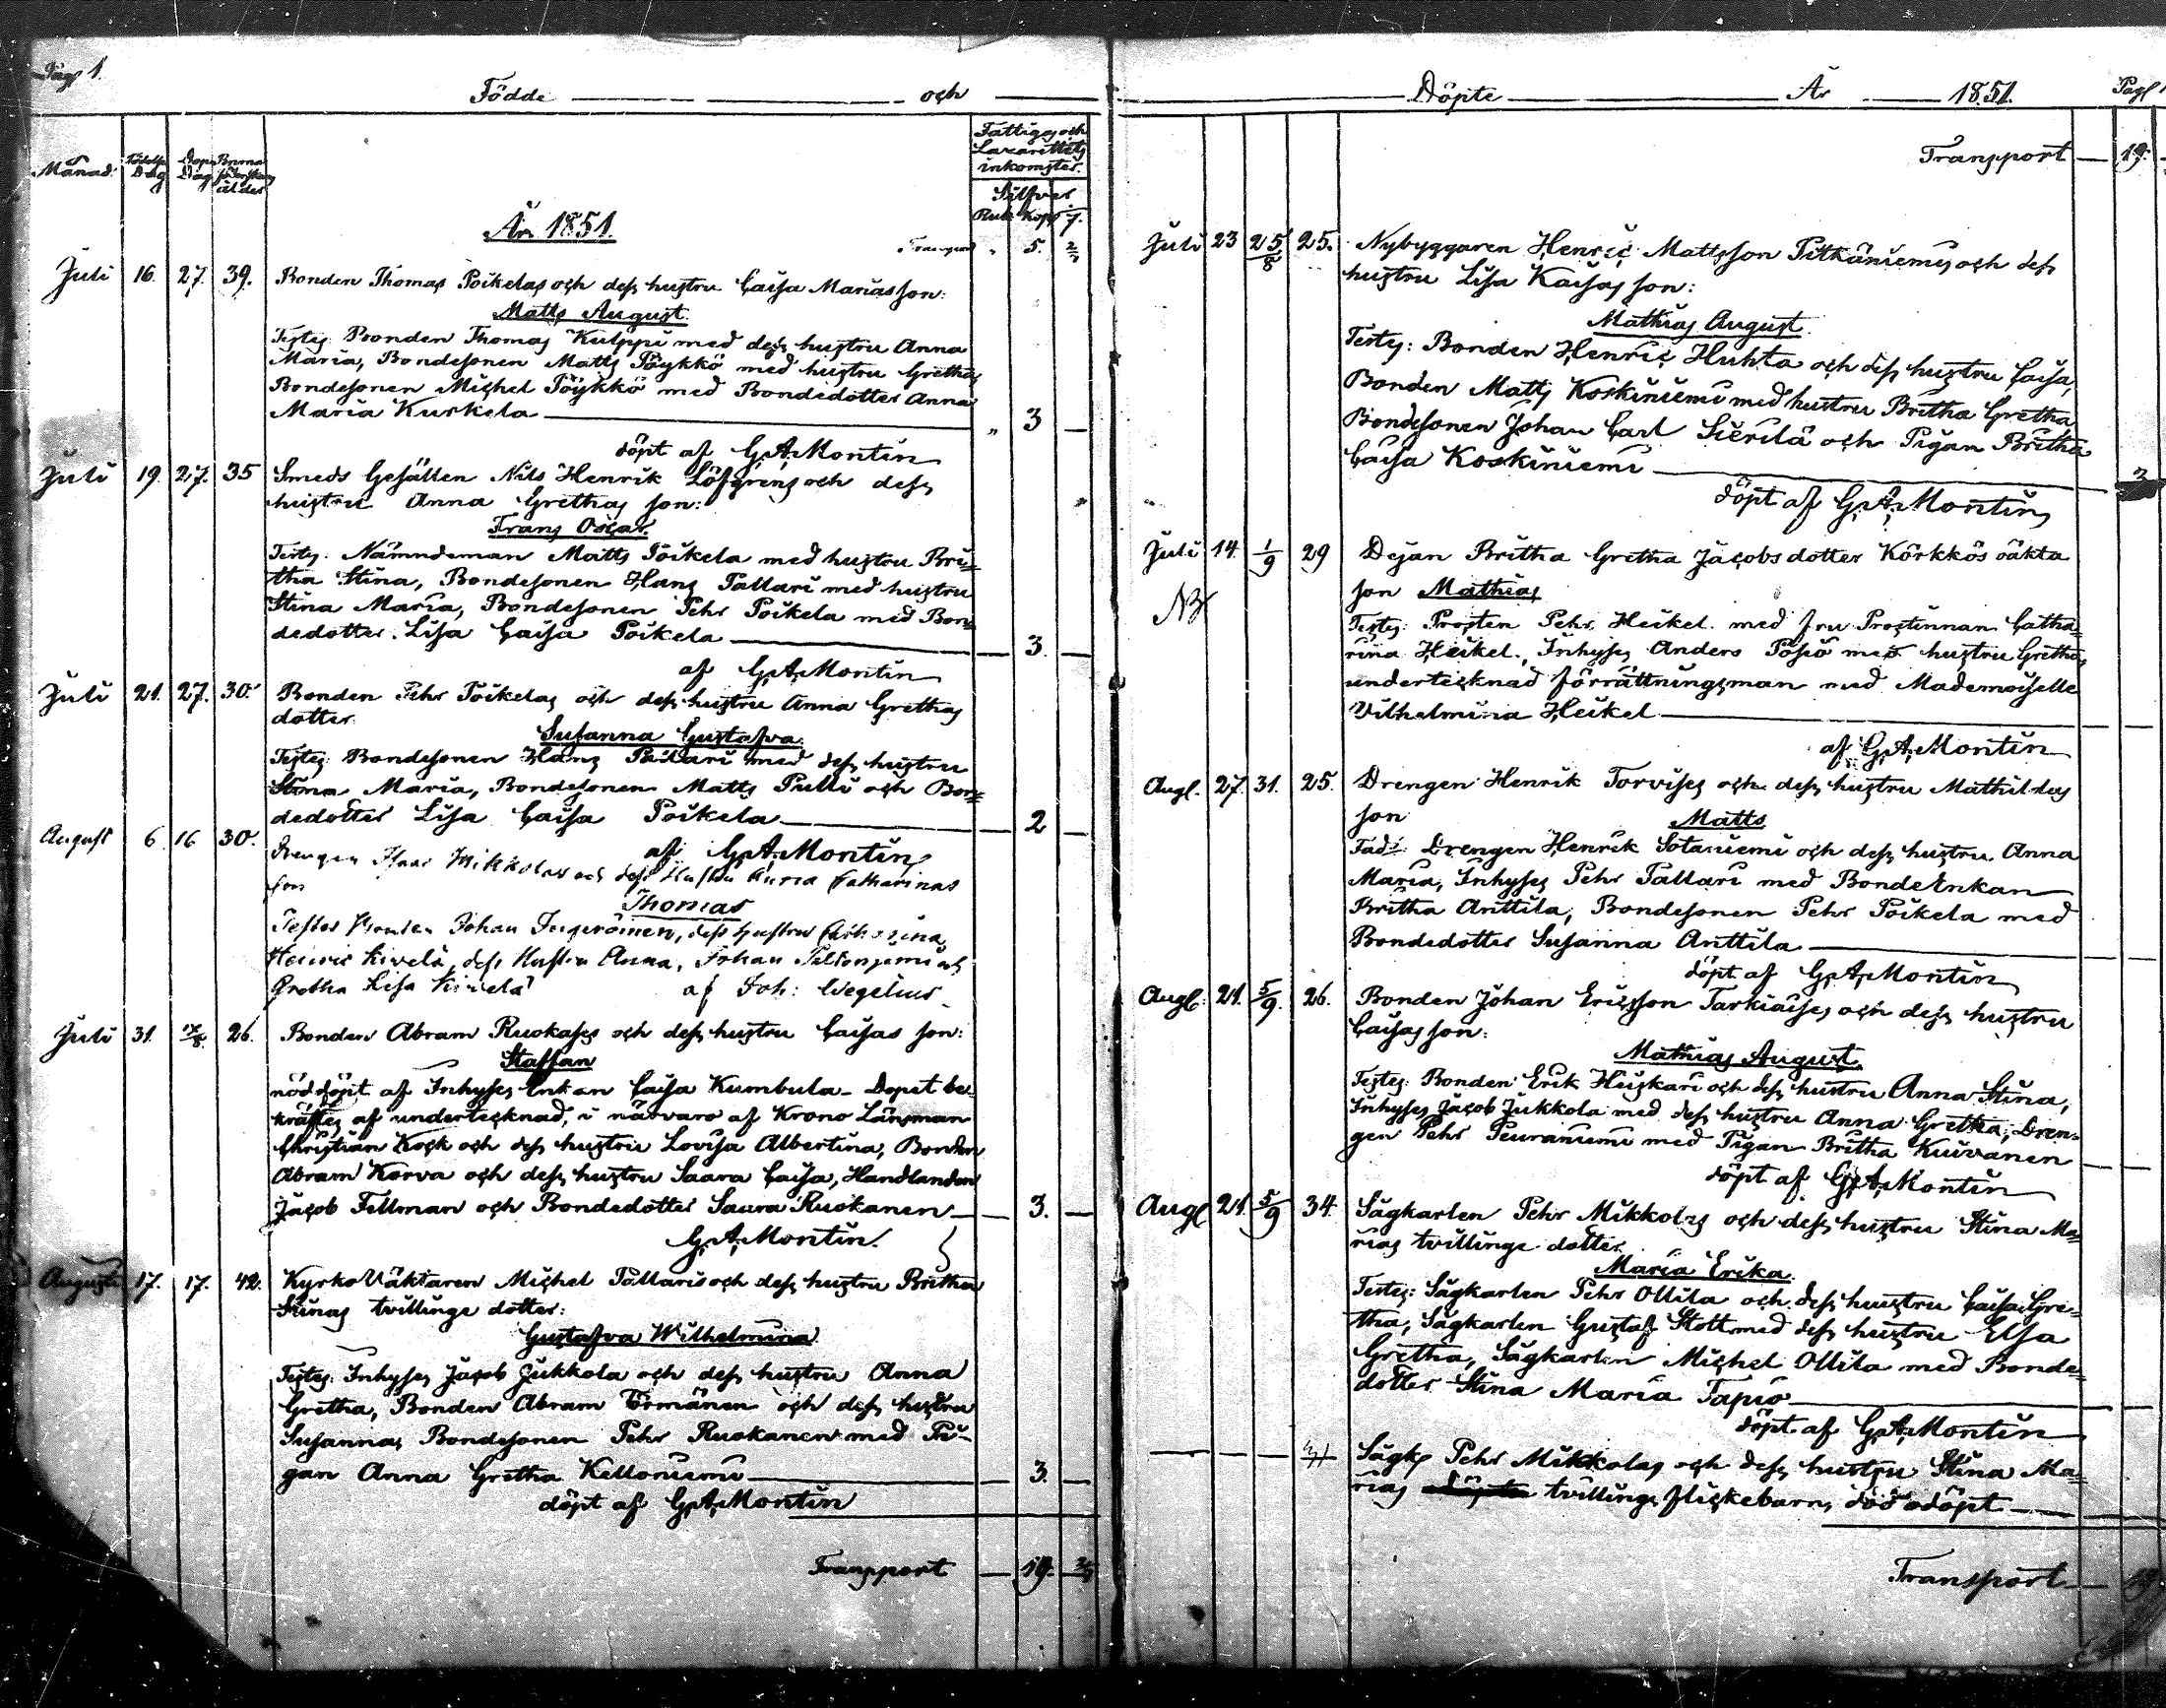 Pag. 1.
Födde och
Månad: Födelse Dag Dope Dag Barna föderskans ålder
Fattigas och Lazarettets inkomster.
Silfver.
Rub. Kop.
År 1851.
Transport " 5. 2/7
Juli 16. 27. 39. Bonden Thomas Poikelas och dess hustru Caisa Marias son:
Matts August.
Testes: Bonden Thomas Kulppi med dess hustru Anna
Maria, Bondesonen Matts Pöykkö med hustru Gretha,
Bondesonen Michel Pöykkö med Bondedotter Anna
Maria Kurkela " 3 —
döpt af G. A. Montin
Juli 19. 27. 35 Smeds Gesällen Nils Henrik Löfgrens och dess
hustru Anna Grethas son:
Frans Oscar.
Testes. Nämndeman Matts Poikela med hustru Bri=
tha Stina, Bondesonen Hans Pallari med hustru
Stina Maria, Bondesonen Pehr Poikela med Bon=
dedotter Lisa Caisa Poikela — 3. —
af G. A. Montin
Juli 21. 27. 30. Bonden Pehr Poikelas och dess hustru Anna Grethas
dotter
Susanna Gustafva.
Testes: Bondesonen Hans Pallari med dess hustru
Stina Maria, Bondesonen Matts Pulli och Bon=
dedotter Lisa Caisa Poikela — 2 —
af G. A. Montin
August 6. 16 30. Drengen Isaac Mikkolas och dess Hustru Anna Catharinas
son
Thomas
Testes Bonden Johan Ingeröinen, dess hustru Catharina,
Henric Kivelä, dess Hustru Anna, Johan Peltoniemi och
Gretha Lisa Kivelä af Joh: Wegelius
Juli 31. 17/8. 26. Bonden Abram Ruokases och dess hustru Caisas son:
Staffan
nöddöpt af Inhyses Enkan Caisa Kumbula. Dopet be=
kräftes af undertecknad, i närvaro af Krono Länsman
Christian Kock och dess hustru Lovisa Albertina, Bonden
Abram Korva och dess hustru Saara Caisa, Handlanden
Jacob Fellman och Bondedotter Saura Ruokanen — 3. —
G. A. Montin.
Augusti 17. 17. 42. KyrkoVäktaren Michel Pallaris och dess hustru Britha
Stinas tvillinge dotter:
Gustafva Wilhelmina
Testes: Inhyses Jacob Jukkola och dess hustru Anna
Gretha, Bonden Abram Törmänen och dess hustru
Susanna, Bondesonen Pehr Ruokanen med Pi=
gan Anna Gretha Kelloniemi — 3. —
döpt af G. A. Montin
Transport — 19. 2/7
Döpte År 1851. Pag. 1
Transport — 19.
Juli 23 25/8 25. Nybyggaren Henric Mattsson Pitkäniemis och dess
hustru Lisa Kaisas son:
Mathias August.
Testes: Bonden Henric Huhta och dess hustru Caisa,
Bonden Matts Koskiniemi med hustru Britha Gretha,
Bondesonen Johan Carl Sierilä och Pigan Britha
Caisa Koskiniemi 3
döpt af G. A. Montin
Juli 14. 1/9 29 Dejan Britha Gretha Jacobsdotter Körkkös oäkta
NB son Mathias
Testes: Prosten Pehr Heikel med fru Prostinnan Catha=
rina Heikel, Inhyses Anders Posio med hustru Gretha,
undertecknad förrättningsman med Mademoiselle
Vilhelmina Heikel
af G. A. Montin
Aug. 27. 31. 25. Drengen Henrik Torvises och dess hustru Mathildas
son
Matts
Fad: Drengen Henrik Sotaniemi och dess hustru Anna
Maria, Inhyses Pehr Pallari med BondeEnkan
Britha Anttila, Bondesonen Pehr Poikela med
Bondedotter Susanna Anttila
döpt af G. A. Montin
Aug. 21. 5/9. 26. Bonden Johan Ericsson Tarkiaises och dess hustru
Caisas son:
Mathias August.
Testes: Bonden Erik Heiskari och dess hustru Anna Stina,
Inhyses Jacob Jukkola med dess hustru Anna Gretha, Dren=
gen Pehr Peuraniemi med Pigan Britha Kuivanen
döpt af G. A. Montin
Aug. 21. 5/9 34. Sågkarlen Pehr Mikkolas och dess hustru Stina Ma=
rias tvillinge dotter
Maria Erika.
Testes: Sågkarlen Pehr Ollila och dess hustru Caisa Gre=
tha, Sågkarlen Gustaf Stolt med dess hustru Elsa
Gretha, Sågkarlen Michel Ollila med Bonde=
dotter Stina Maria Tapio
döpt af G. A. Montin
— — — Sågk. Pehr Mikkolas och dess hustru Stina Ma=
rias tvillinge flickebarn, död odöpt
Transport — 19